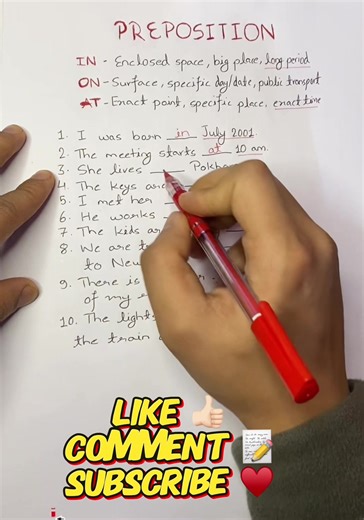 PREPOSITION
IN - Enclosed space, big place, long period
ON - Surface, specific day/date, public transport
AT - Exact point, specific place, exact time
1. I was born in July 2001.
2. The meeting starts at 10 am.
3. She lives
4. The keys are
5. I met her
6. He works
7. The kids are
8. We are
to New
9. There is
of my
10. The lights
the train
LIKE
COMMENT
SUBSCRIBE